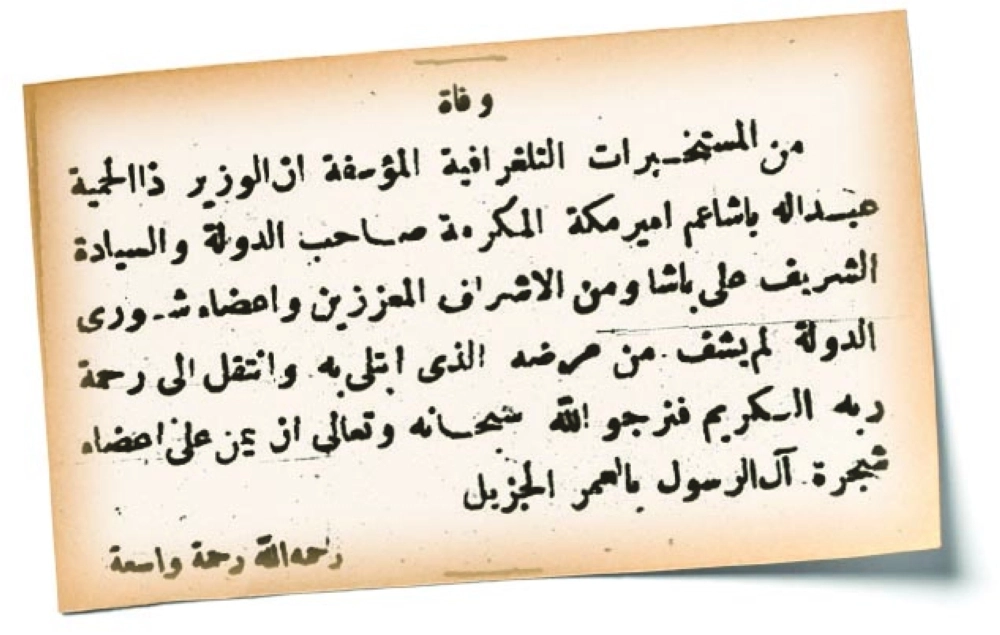 وفاة
من المستخبرات التلغرافية المؤسفة ان الوزير ذا الحمية
عبد اله باشا عم امير مكة المكرمة صاحب الدولة والسيادة
الشريف على باشا ومن الاشراف المعززين واعضاء شورى
الدولة لم يشف من مرضه الذى ابتلى به وانتقل الى رحمة
ربه الكريم فنرجو الله سبحانه وتعالى ان يمن على اعضاء
شجرة آل الرسول بالعمر الجزيل
رحمه الله رحمة واسعة